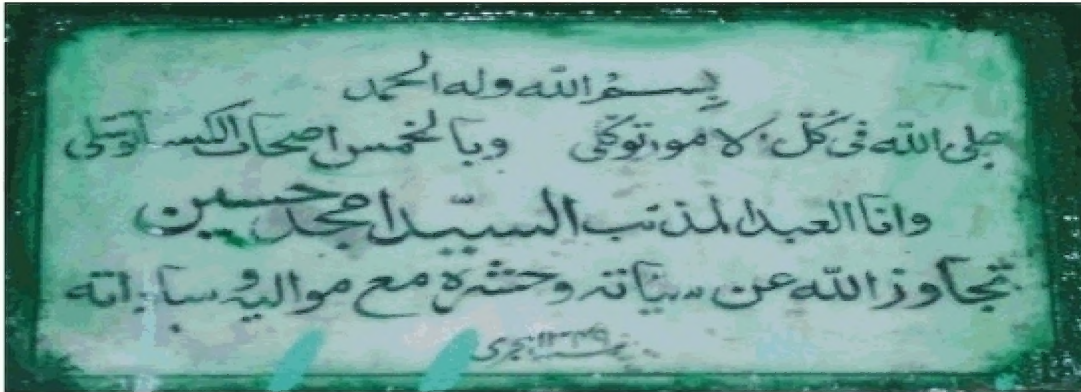 بِسْمِ الله وله الحمد
على الله فی کُلّ الامور توکلی وبالخمس اصحاب الکساء توسلی
وانا العبد المذنب السیّد امجد حسین
تجاوز الله عن سیئاته وحشره مع موالیه وساداته
سنه ۱۳۴۹ هجری